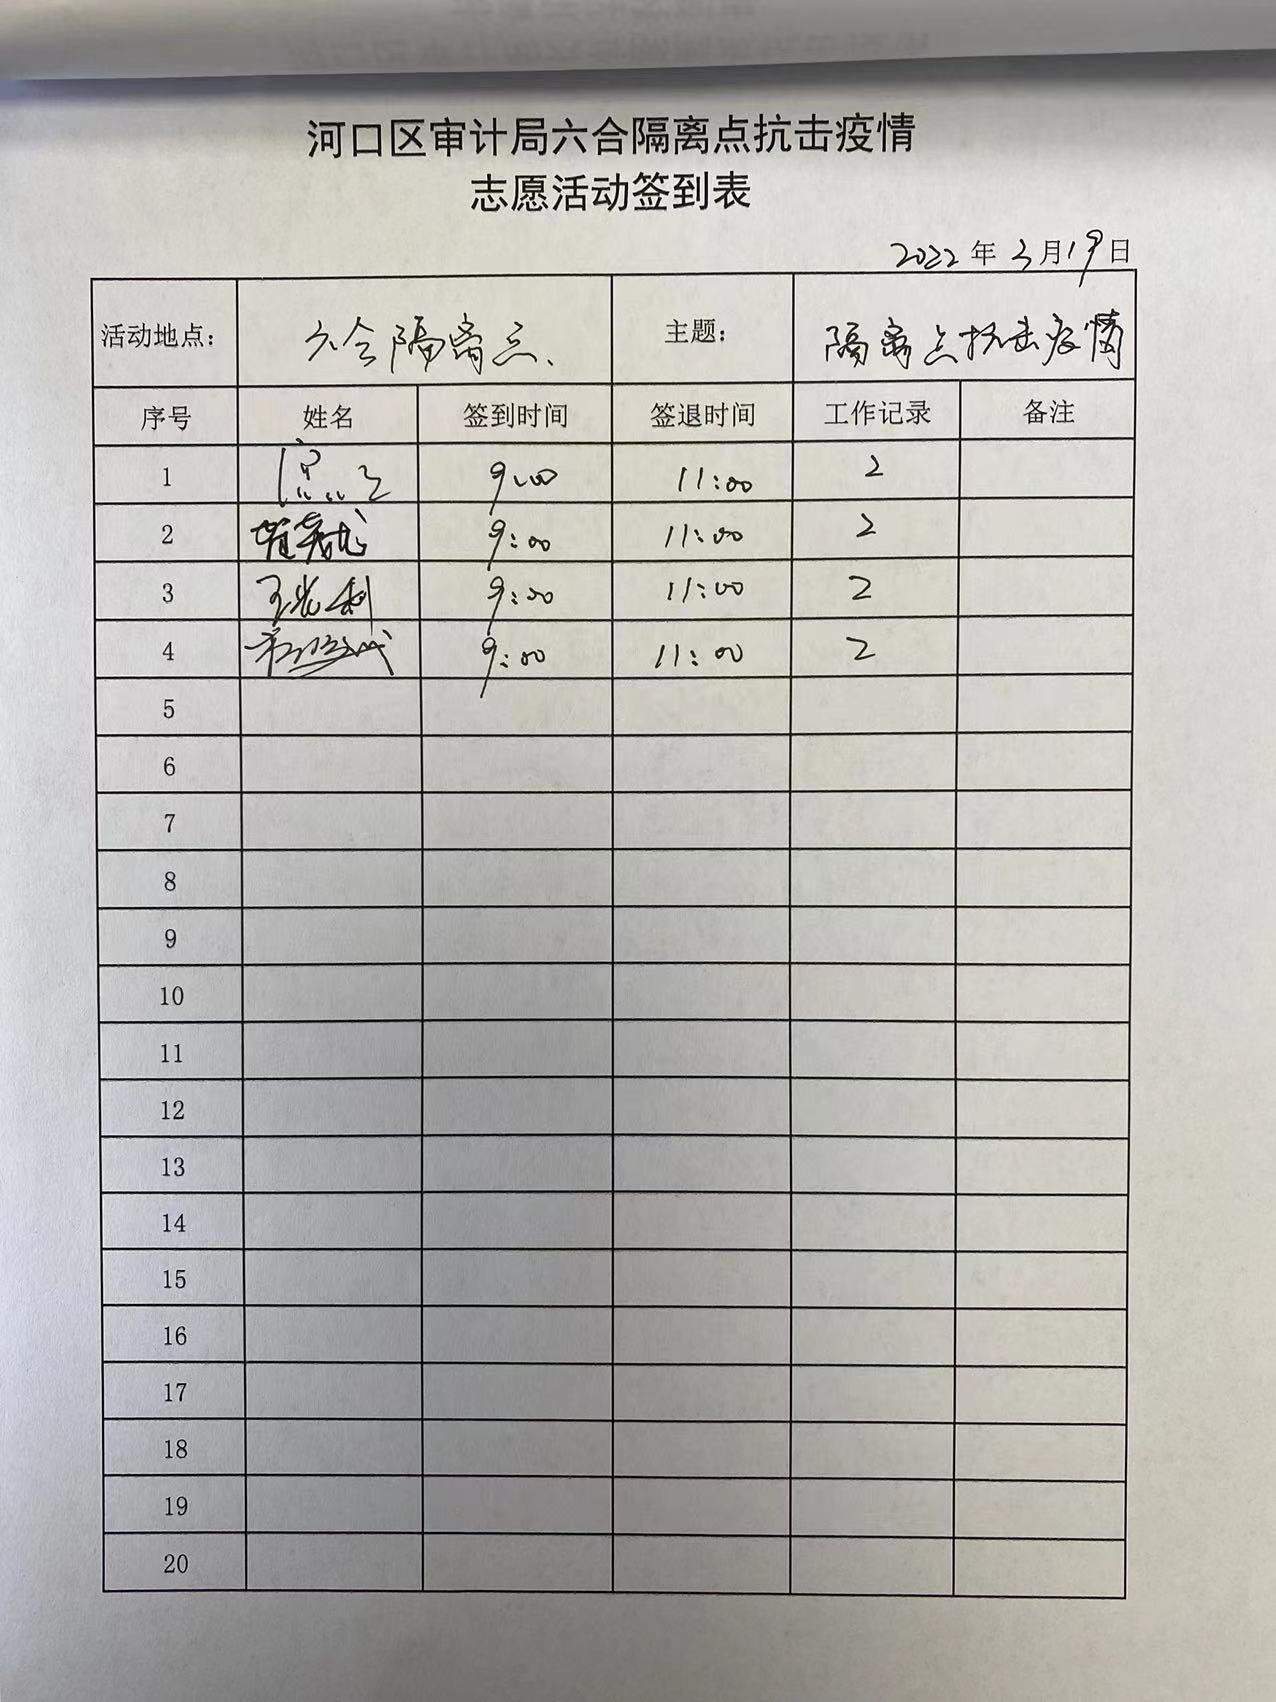 河口区审计局六合隔离点抗击疫情
志愿活动签到表
2022年3月19日
活动地点: 六合隔离点、 主题: 隔离点抗击疫情
序号 姓名 签到时间 签退时间 工作记录 备注
1 9:00 11:00 2
2 9:00 11:00 2
3 9:00 11:00 2
4 9:00 11:00 2
5
6
7
8
9
10
11
12
13
14
15
16
17
18
19
20